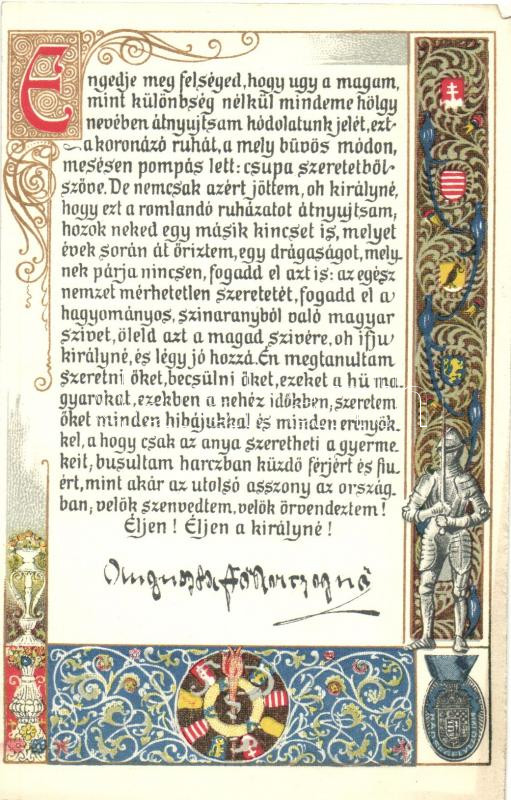 Engedje meg felséged, hogy ugy a magam,
mint különbség nélkül mindeme hölgy
nevében átnyujtsam hódolatunk jelét, ezt
a koronázó ruhát, a mely büvös módon,
mesésen pompás lett: csupa szeretetből
szöve. De nemcsak azért jöttem, oh királyné,
hogy ezt a romlandó ruházatot átnyujtsam;
hozok neked egy másik kincset is, melyet
évek során át őriztem, egy drágaságot, mely-
nek párja nincsen, fogadd el azt is: az egész
nemzet mérhetetlen szeretetét, fogadd el a
hagyományos, szinaranyból való magyar
szivet, öleld azt a magad szivére, oh ifju
királyné, és légy jó hozzá. Én megtanultam
szeretni őket, becsülni őket, ezeket a hü ma-
gyarokat, ezekben a nehéz időkben, szeretem
őket minden hibájukkal és minden erényök-
kel, a hogy csak az anya szeretheti a gyerme-
keit; busultam harczban küzdő férjért és fiu-
ért, mint akár az utolsó asszony az ország-
ban; velök szenvedtem, velök örvendeztem!
Éljen! Éljen a királyné!
Auguszta főherczegnő